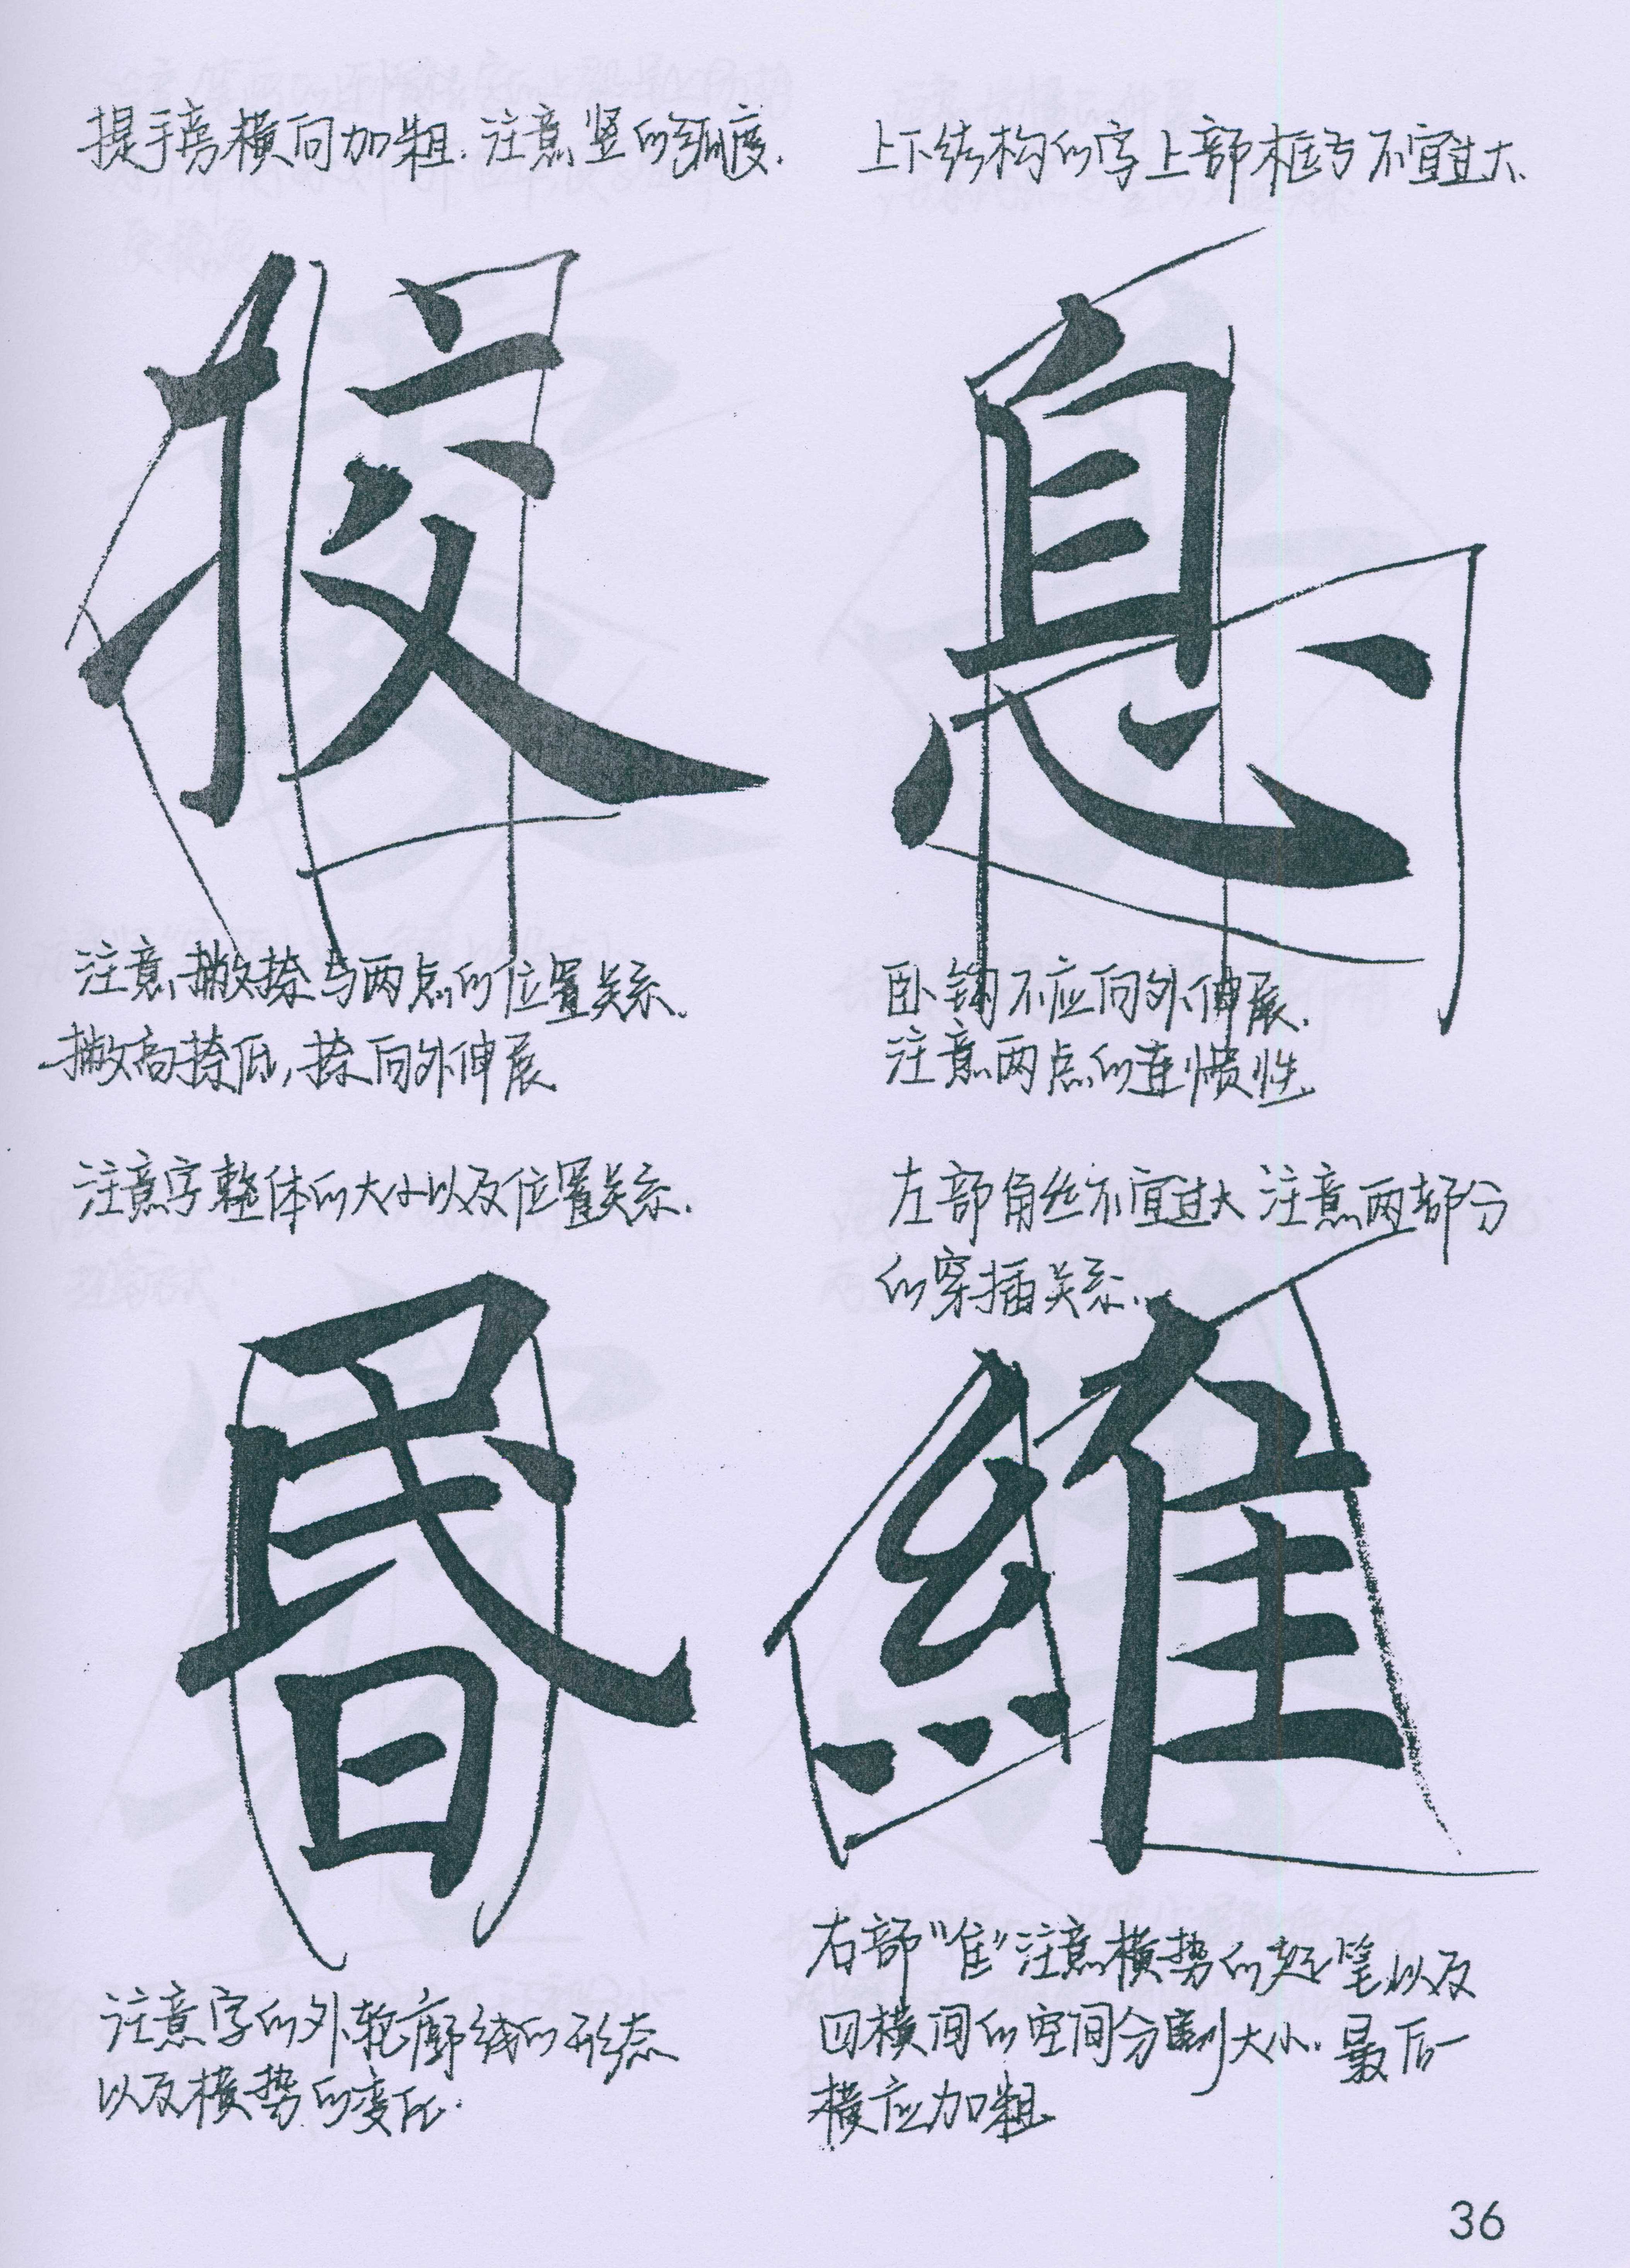 提手旁横向加粗.注意竖的弧度.
挍
注意撇捺与两点的位置关系.
撇高捺低,捺向外伸展
上下结构的字上部框号不宜过大.
息
卧钩不应向外伸展.
注意两点的连惯性.
注意字整体的大小以及位置关系.
昬
注意字的外轮廓线的形态
以及横势的变化.
左部角丝不宜过大 注意两部分
的穿插关系.
維
右部"隹"注意横势的起笔以及
四横间的空间分割大小.最后一
横应加粗
36